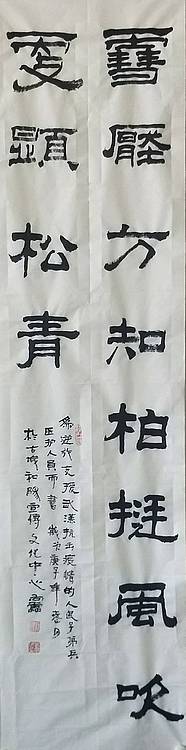 雪壓方知柏挺風吹
更顯松青
為逆行支援武漢抗击疫情的人民子弟兵
医护人員而書 歲次庚子年春月
於古城和勝宣傳文化中心